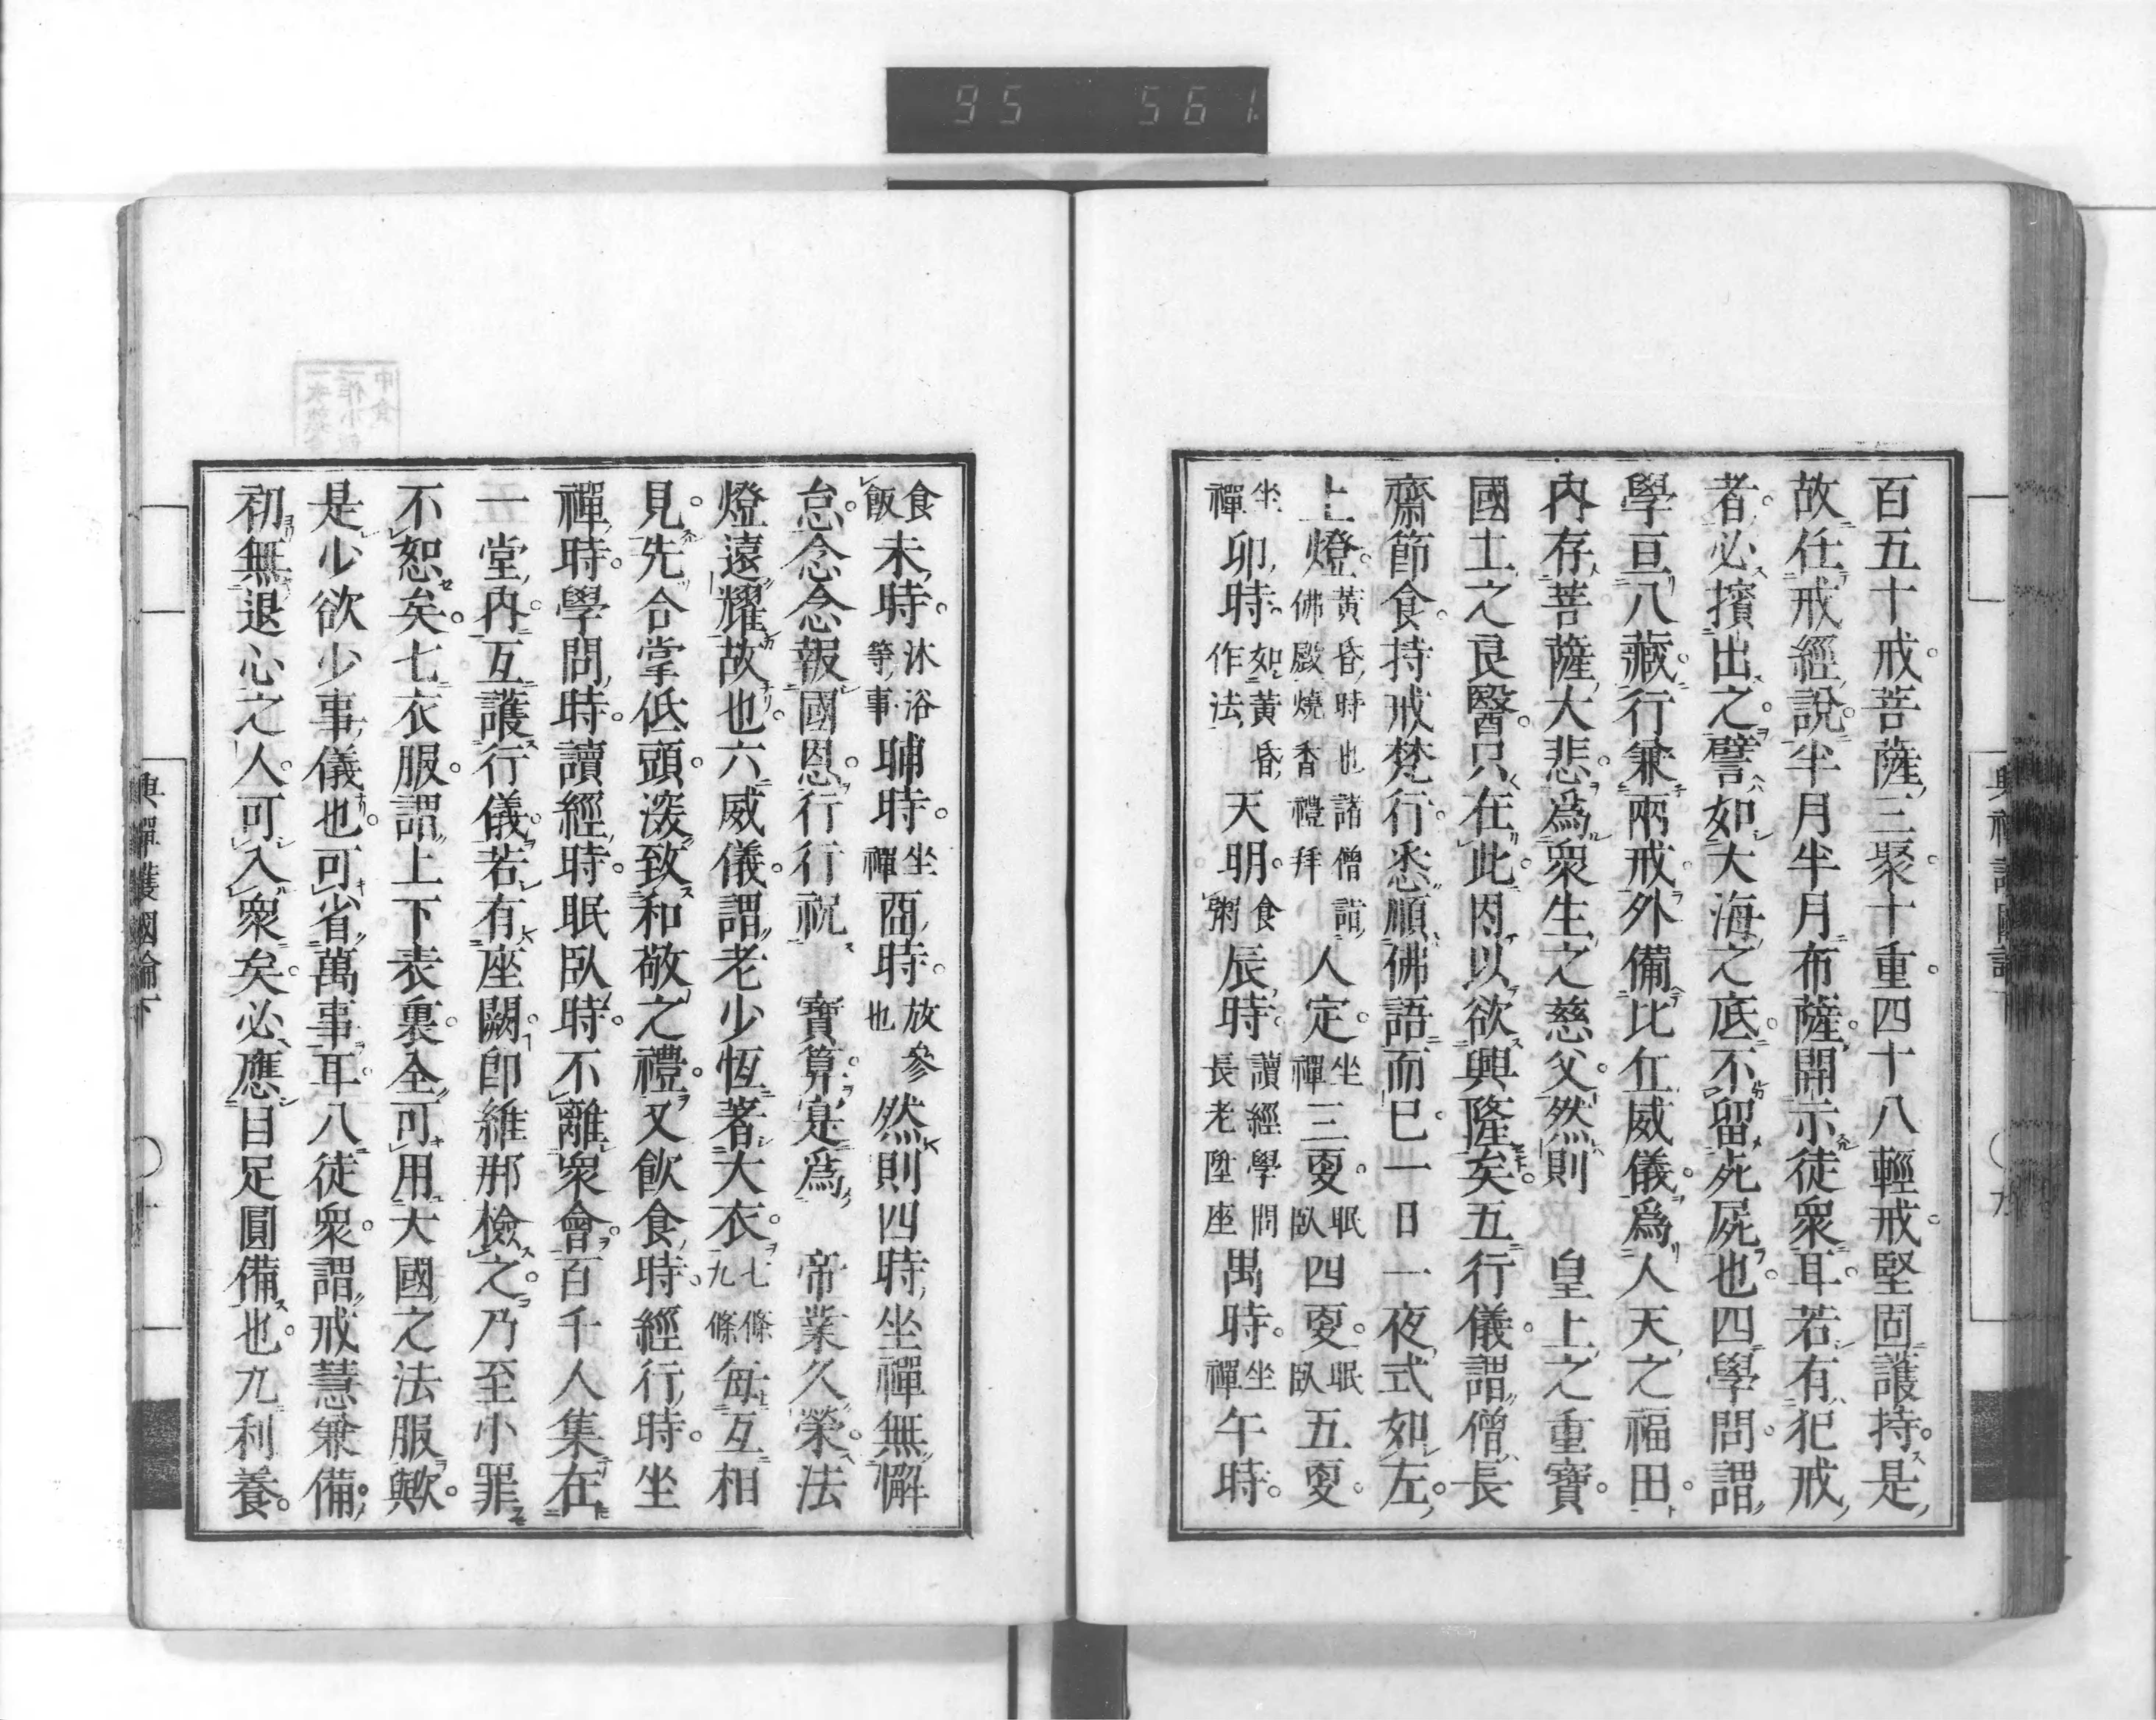 95 561
百五十戒。菩薩三聚十重四十八輕戒。堅固護持。是
故任戒經説。半月半月布薩。開示徒衆耳。若有犯戒
者。必擯出之。譬如大海之底。不留死屍也。四學問。謂
學亘八藏。行兼兩戒。外備比丘威儀。爲人天之福田。
内存菩薩大悲。爲衆生之慈父。然則 皇上之重寶。
國土之良醫。只在此。因以欲興隆矣。五行儀。謂僧長
齋節食。持戒梵行。悉順佛語而已。一日一夜式如左。
上燈。黃昏時也諸僧詣佛殿燒香禮拜 人定。坐禪 三夏。眠臥 四夏。眠臥 五夏。
坐禪 卯時。如黃昏作法 天明。食粥 辰時。讀經學問長老陞座 禺時。坐禪 午時。
食飯 未時。沐浴等事 晡時。坐禪 酉時。放參也 然則四時坐禪無懈
怠。念念報國恩。行行祝 寶算。寔爲 帝業久榮。法
燈遠耀故也。六威儀。謂老少恆著大衣。七條九條 每互相
見。先合掌低頭。深致和敬之禮。又飲食時。經行時。坐
禪時。學問時。讀經時。眠臥時。不離衆會。百千人集在
一堂内。互護行儀。若有座闕。卽維那檢之。乃至小罪
不恕矣。七衣服。謂上下表裏。全可用大國之法服歟。
是少欲少事儀也。可省萬事耳。八徒衆。謂戒慧兼備。
初無退心之人。可入衆矣。必應目足圓備也。九利養。
興禪護國論下